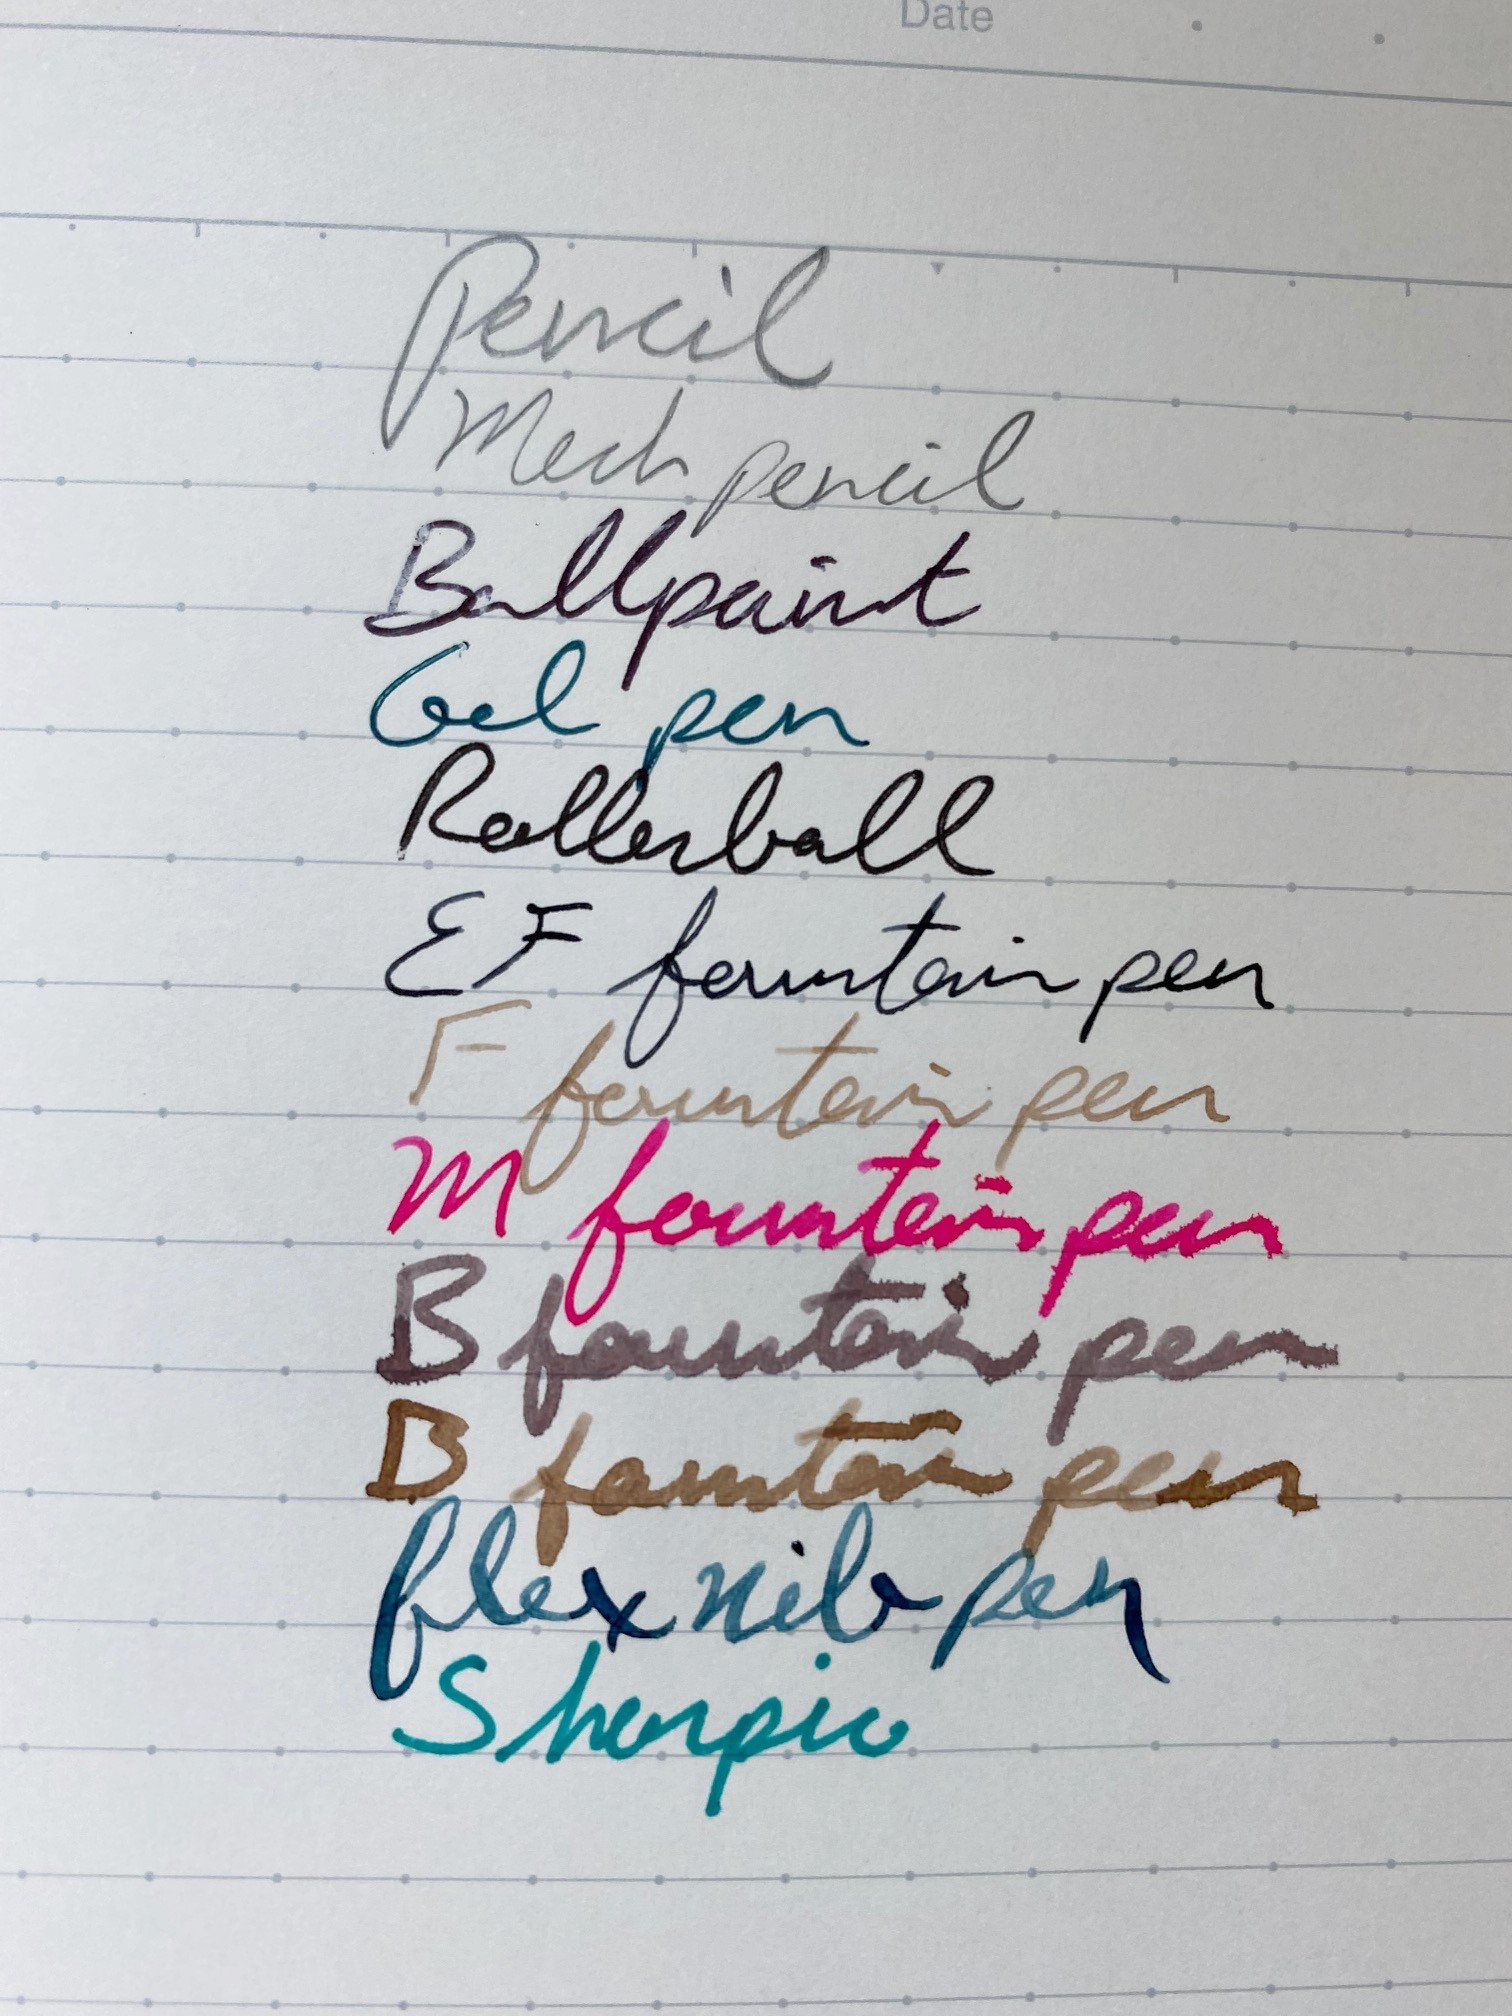 Date
Pencil
Mech pencil
Ballpoint
Gel pen
Rollerball
EF fountain pen
F fountain pen
M fountain pen
B fountain pen
B fountain pen
flex nib pen
Sharpie